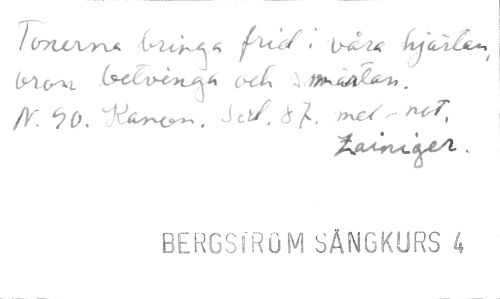 Tonerna bringa frid i våra hjärtan,
oron betvinga och smärtan.
N. 90. Kanon. Sid. 87. mel-not.
Zainiger.
BERGSTRÖM SÅNGKURS 4